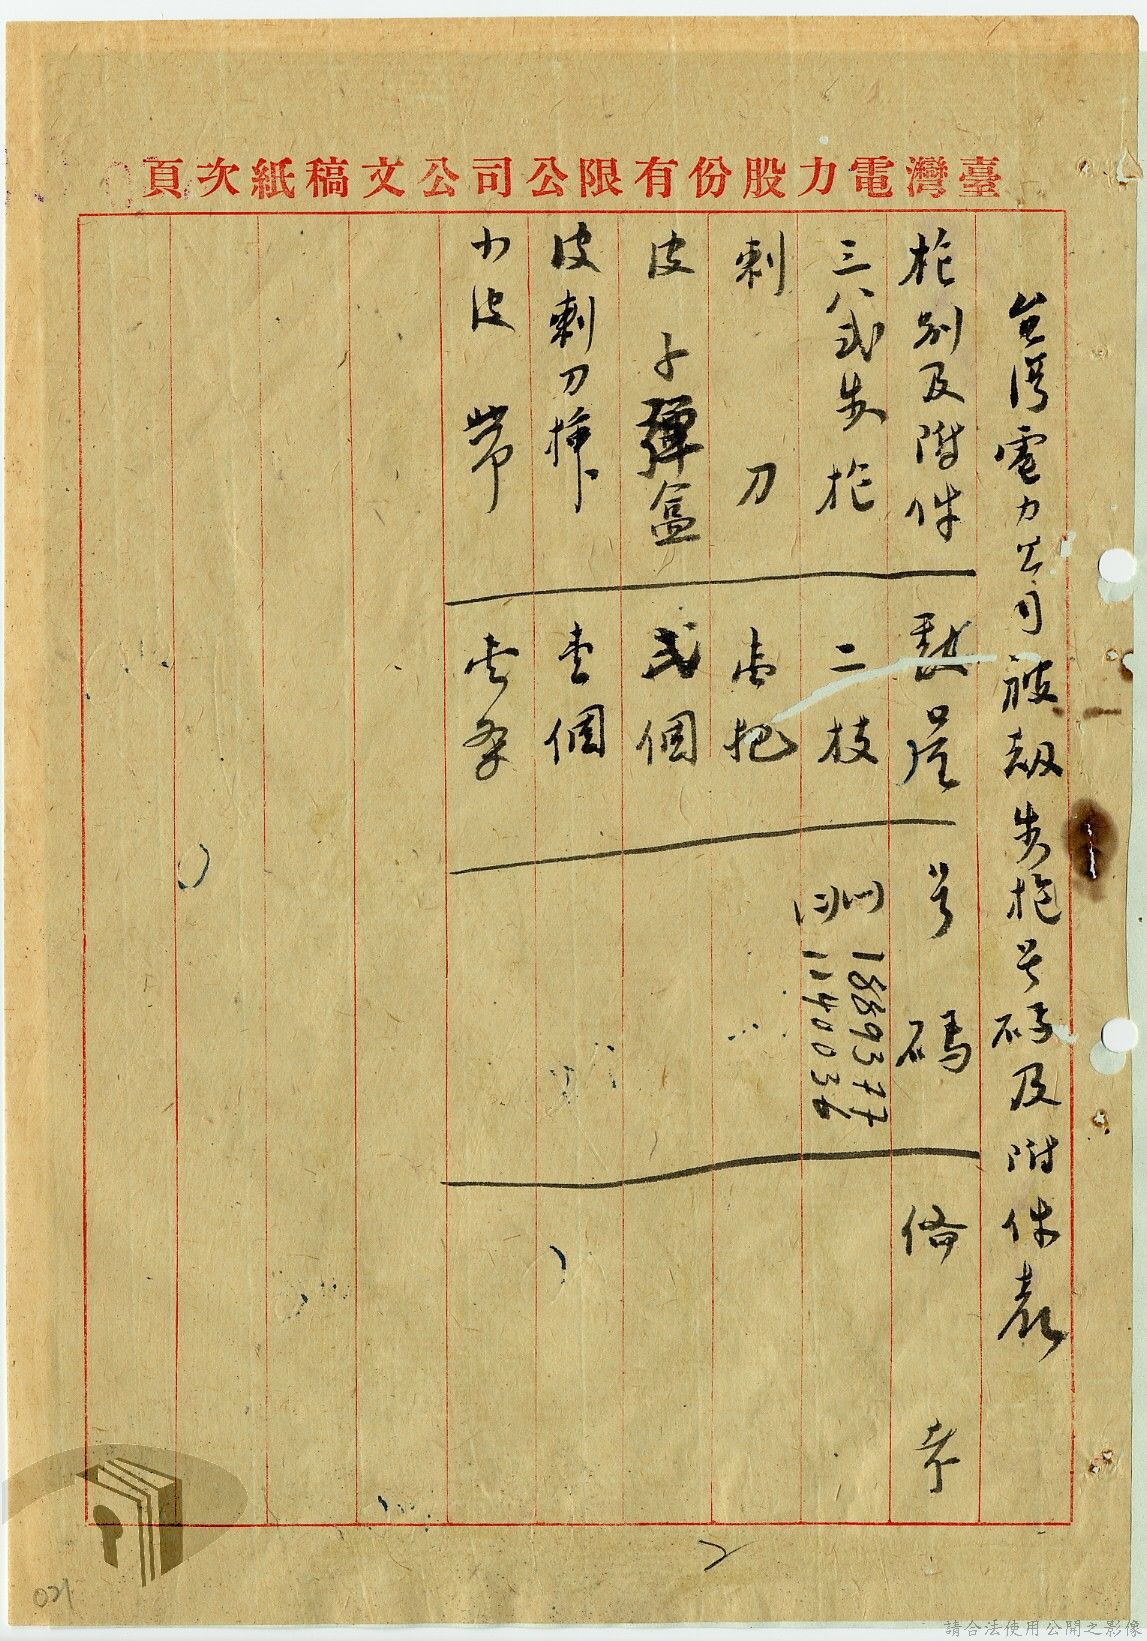 臺灣電力股份有限公司公文稿紙次頁
台湾電力公司被劫步枪号碼及附件表
枪别及附件 數量 号碼 俻考
三八式步枪 二枝 (一) 1889377 (二) 1140036
刺刀 壹把
皮子彈盒 弍個
皮刺刀插 壹個
小皮帶 壹条
2
021
請合法使用公開之影像